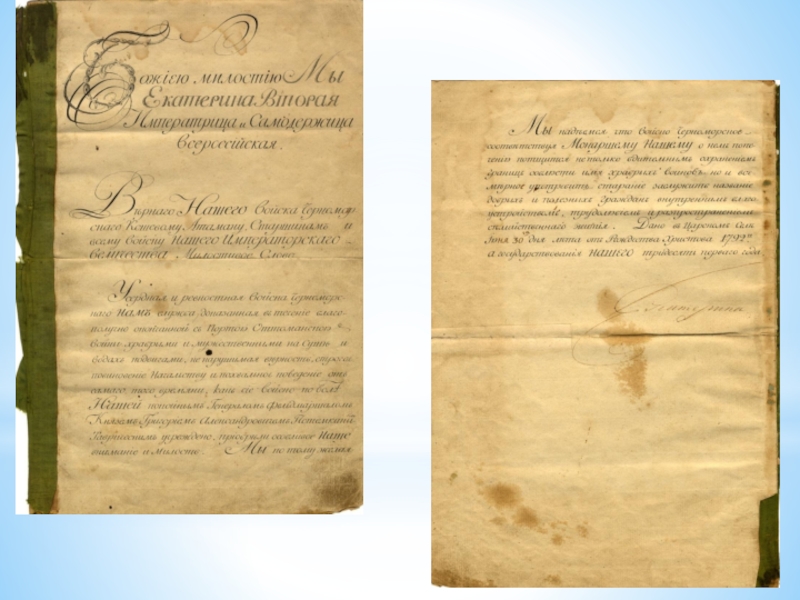 Божіею милостію Мы
Екатерина Вторая
Императрица и Самодержица
Всероссійская.
Вѣрнаго Нашего Войска Черномор
скаго Кошевому Атаману, Старшинамъ и
всему Войску Нашего Императорскаго
величества Милостивое Слово.
Усердная и ревностная Войска Черномор-
скаго Намъ служба доказанная въ теченіе благо-
получно оконченной съ Портою Оттоманскою
войны храбрыми и мужественными на Сушѣ и
водахъ подвигами, не нарушимая вѣрность, строгое
повиновеніе Начальству и похвальное поведеніе отъ
самаго того времяни, какъ сіе войско по волѣ
Нашей покойнымъ Генераломъ Фельдмаршаломъ
Княземъ Григорьемъ Александровичемъ Потемкинымъ
Таврическимъ учреждено, пріобрѣли особливое Наше
вниманіе и Милость. Мы по тому желая
Мы надѣемся что Войско Черноморское
соотвѣтствуя Монаршему Нашему о немъ попе-
ченію потщится не только бдительнымъ охраненіемъ
границъ соблюсти имя храбрыхъ воиновъ но и все-
мѣрно употребить стараніе заслужить названіе
добрыхъ и полезныхъ гражданъ внутреннимъ благо
устройствомъ, трудолюбіемъ и распространеніемъ
семейственнаго житія. Дано въ Царскомъ Селѣ
Іюня 30 дня лѣта отъ Рождества Христова 1792го
а государствованія Нашего тридесять перваго года
Екатерина